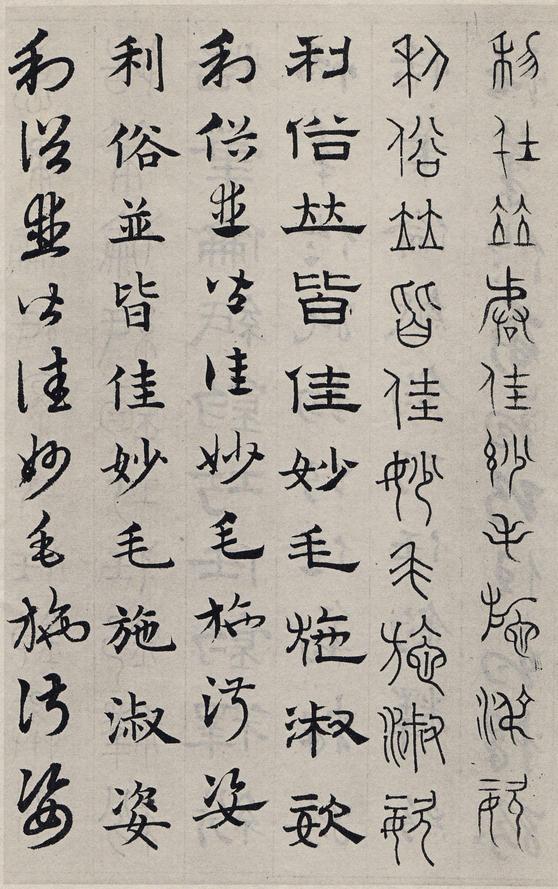 利俗並皆佳妙毛施淑姿
利俗並皆佳妙毛施淑姿
利俗並皆佳妙毛施淑姿
利俗並皆佳妙毛施淑姿
利俗並皆佳妙毛施淑姿
利俗並皆佳妙毛施淑姿